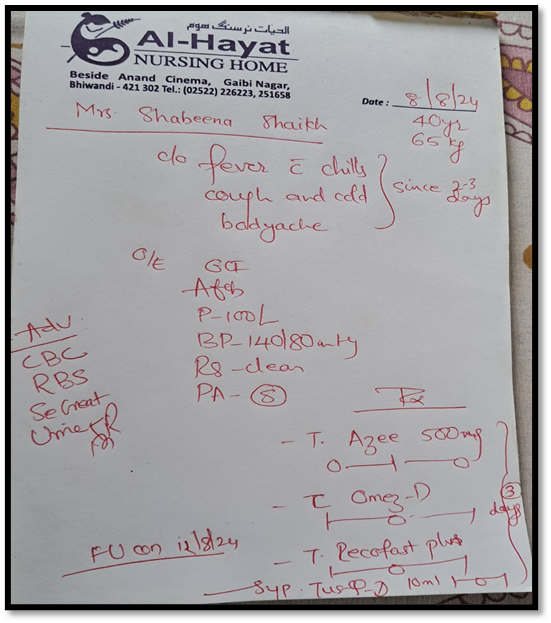 الحیات نرسنگ ہوم
Al-Hayat
NURSING HOME
Beside Anand Cinema, Gaibi Nagar,
Bhiwandi - 421 302 Tel.: (02522) 226223, 251658
Date : 8/8/24
40yr
65 kg
Mrs. Shabeena Shaikh
c/o fever c̄ chills
cough and cold
bodyache
since 2-3 days
O/E GCF
Afeb
P-100/
BP-140/80 mmHg
RS-clear
PA-Ⓢ
Adv
CBC
RBS
Se Creat
Urine R
Rx
- T. Azee 500mg
- C Omez-D
- T. Recofast plus
- Syp. Tus-Q-D 10ml
③ days
FU on 12/8/24